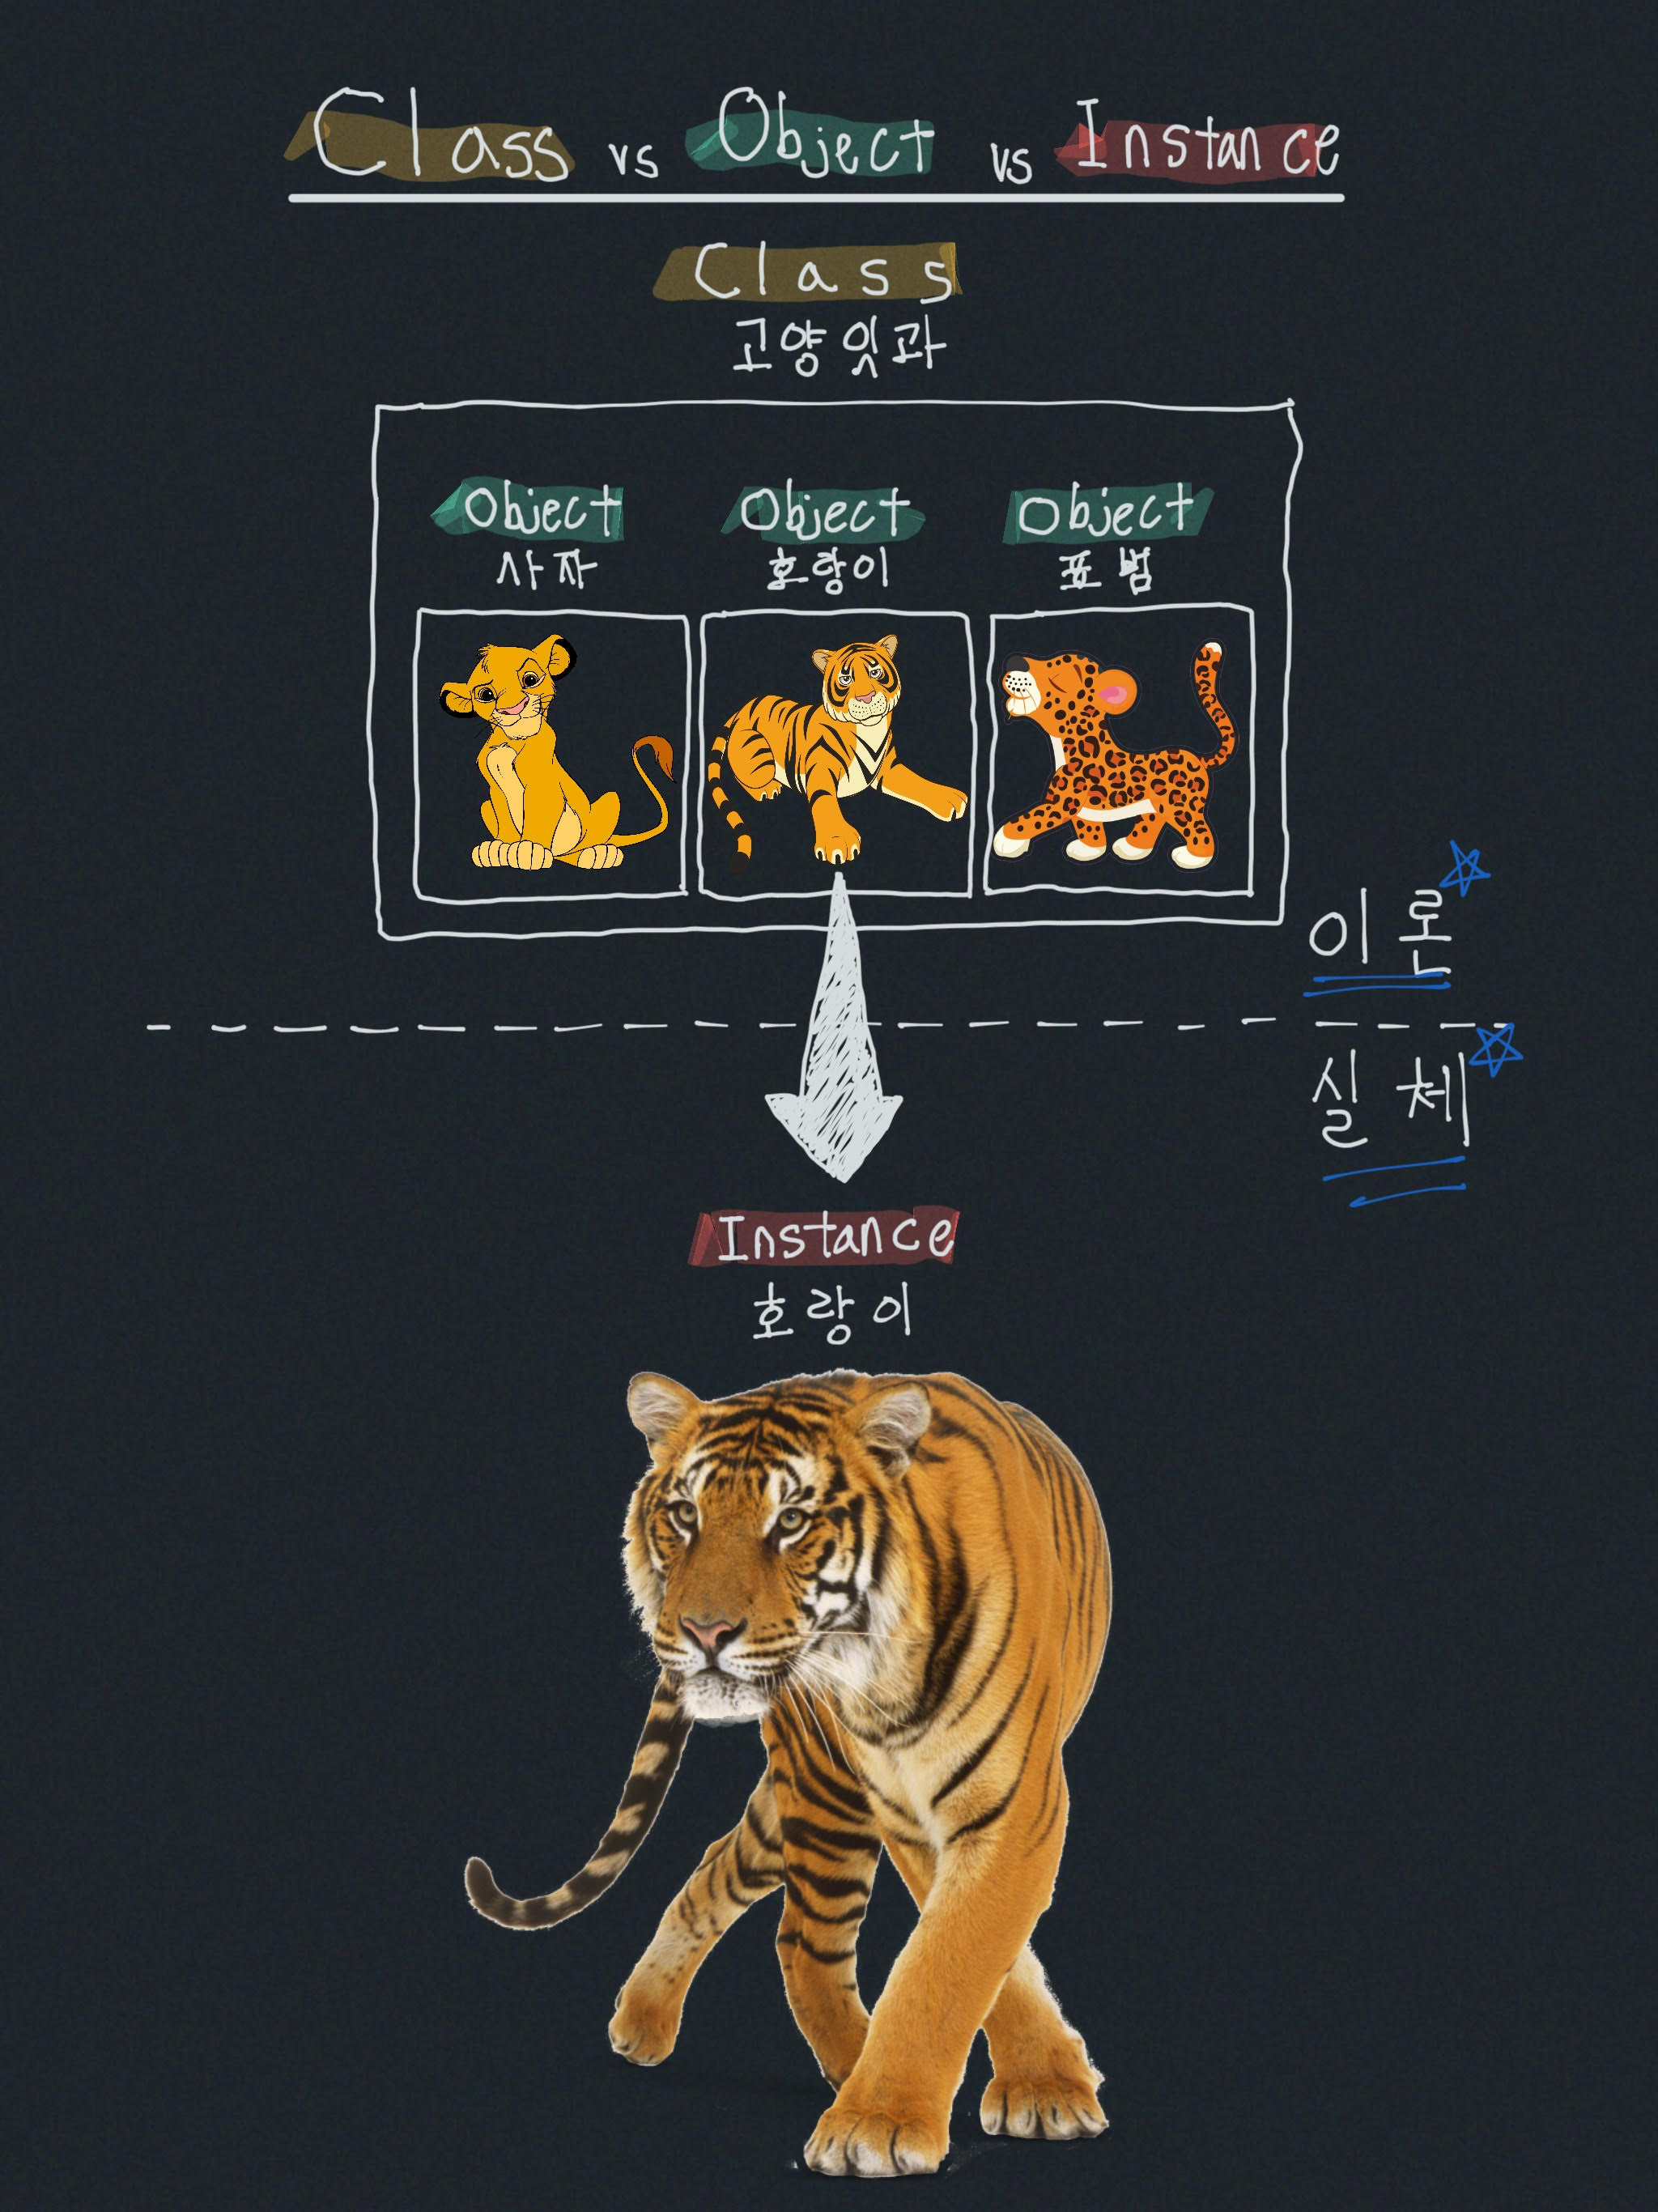 Class vs Object vs Instance
Class
고양잇과
Object Object Object
사자 호랑이 표범
이론
실체
Instance
호랑이